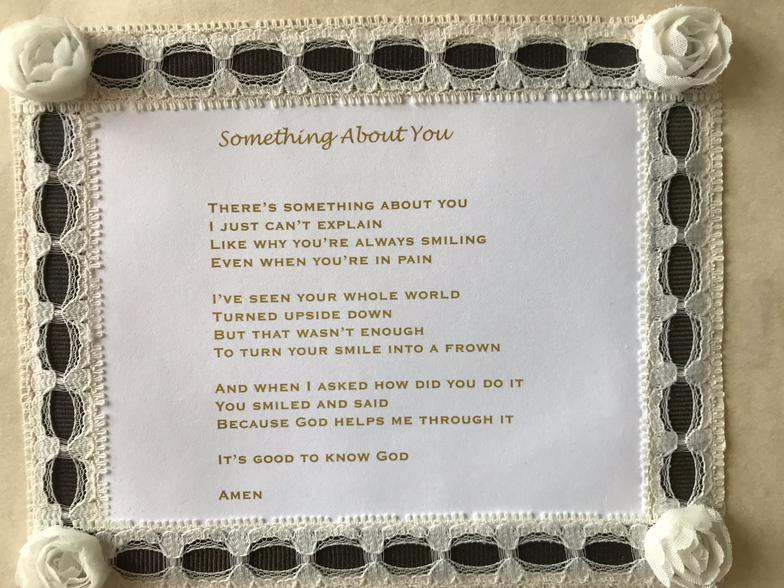 Something About You
There's something about you
I just can't explain
Like why you're always smiling
Even when you're in pain
I've seen your whole world
Turned upside down
But that wasn't enough
To turn your smile into a frown
And when I asked how did you do it
You smiled and said
Because God helps me through it
It's good to know God
Amen